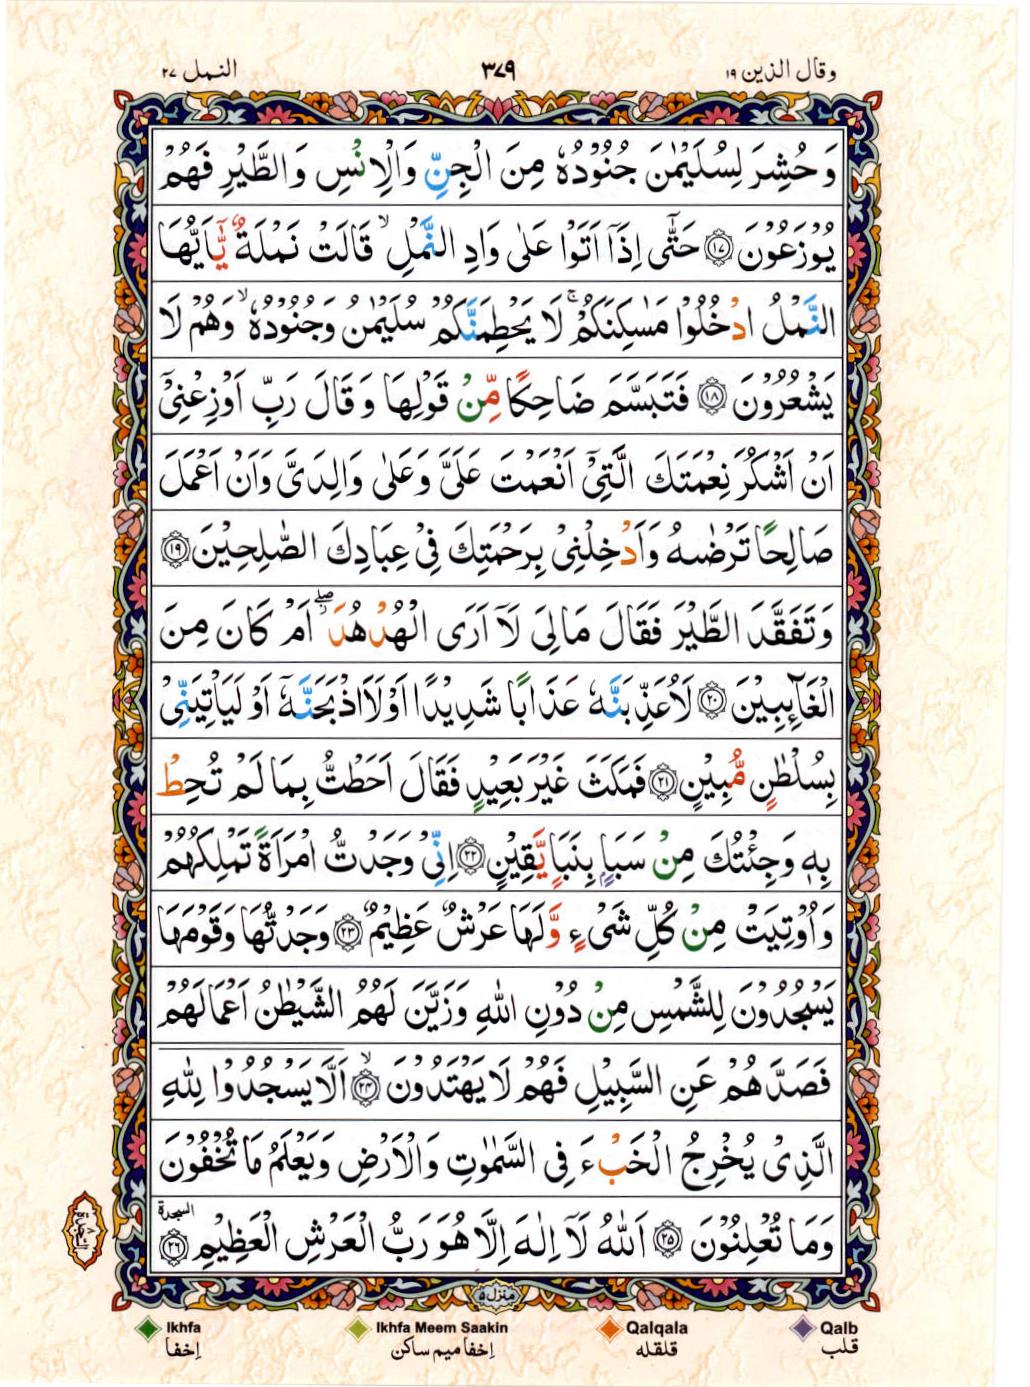 وقال الذین ۱۹
۳۷۹
النمل ۲۷
وَ حُشِرَ لِسُلَیْمٰنَ جُنُوْدُهٗ مِنَ الْجِنِّ وَالْاِنْسِ وَ الطَّیْرِ فَهُمْ
یُوْزَعُوْنَ ﴿۱۷﴾ حَتّٰۤی اِذَاۤ اَتَوْا عَلٰی وَادِ النَّمْلِ ۙ قَالَتْ نَمْلَةٌ یّٰۤاَیُّهَا
النَّمْلُ ادْخُلُوْا مَسٰكِنَكُمْ ۚ لَا یَحْطِمَنَّكُمْ سُلَیْمٰنُ وَجُنُوْدُهٗ ۙ وَهُمْ لَا
یَشْعُرُوْنَ ﴿۱۸﴾ فَتَبَسَّمَ ضَاحِكًا مِّنْ قَوْلِهَا وَ قَالَ رَبِّ اَوْزِعْنِیْۤ
اَنْ اَشْكُرَ نِعْمَتَكَ الَّتِیْۤ اَنْعَمْتَ عَلَیَّ وَ عَلٰی وَالِدَیَّ وَاَنْ اَعْمَلَ
صَالِحًا تَرْضٰىهُ وَ اَدْخِلْنِیْ بِرَحْمَتِكَ فِیْ عِبَادِكَ الصّٰلِحِیْنَ ﴿۱۹﴾
وَ تَفَقَّدَ الطَّیْرَ فَقَالَ مَا لِیَ لَاۤ اَرَی الْهُدْهُدَ ۖ اَمْ كَانَ مِنَ
الْغَآىِٕبِیْنَ ﴿۲۰﴾ لَاُعَذِّبَنَّهٗ عَذَابًا شَدِیْدًا اَوْ لَاَاذْبَحَنَّهٗۤ اَوْ لَیَاْتِیَنِّیْ
بِسُلْطٰنٍ مُّبِیْنٍ ﴿۲۱﴾ فَمَكَثَ غَیْرَ بَعِیْدٍ فَقَالَ اَحَطْتُّ بِمَا لَمْ تُحِطْ
بِهٖ وَ جِئْتُكَ مِنْ سَبَاٍ بِنَبَاٍ یَّقِیْنٍ ﴿۲۲﴾ اِنِّیْ وَجَدْتُّ امْرَاَةً تَمْلِكُهُمْ
وَ اُوْتِیَتْ مِنْ كُلِّ شَیْءٍ وَّ لَهَا عَرْشٌ عَظِیْمٌ ﴿۲۳﴾ وَجَدْتُّهَا وَ قَوْمَهَا
یَسْجُدُوْنَ لِلشَّمْسِ مِنْ دُوْنِ اللّٰهِ وَ زَیَّنَ لَهُمُ الشَّیْطٰنُ اَعْمَالَهُمْ
فَصَدَّهُمْ عَنِ السَّبِیْلِ فَهُمْ لَا یَهْتَدُوْنَ ۙ﴿۲۴﴾ اَلَّا یَسْجُدُوْا لِلّٰهِ
الَّذِیْ یُخْرِجُ الْخَبْءَ فِی السَّمٰوٰتِ وَ الْاَرْضِ وَ یَعْلَمُ مَا تُخْفُوْنَ
وَ مَا تُعْلِنُوْنَ ﴿۲۵﴾ اَللّٰهُ لَاۤ اِلٰهَ اِلَّا هُوَ رَبُّ الْعَرْشِ الْعَظِیْمِ السجدة ﴿۲۶﴾
منزل ۵
Ikhfa Ikhfa Meem Saakin Qalqala Qalb
اِخفا اِخفا میم ساکن قلقله قلب